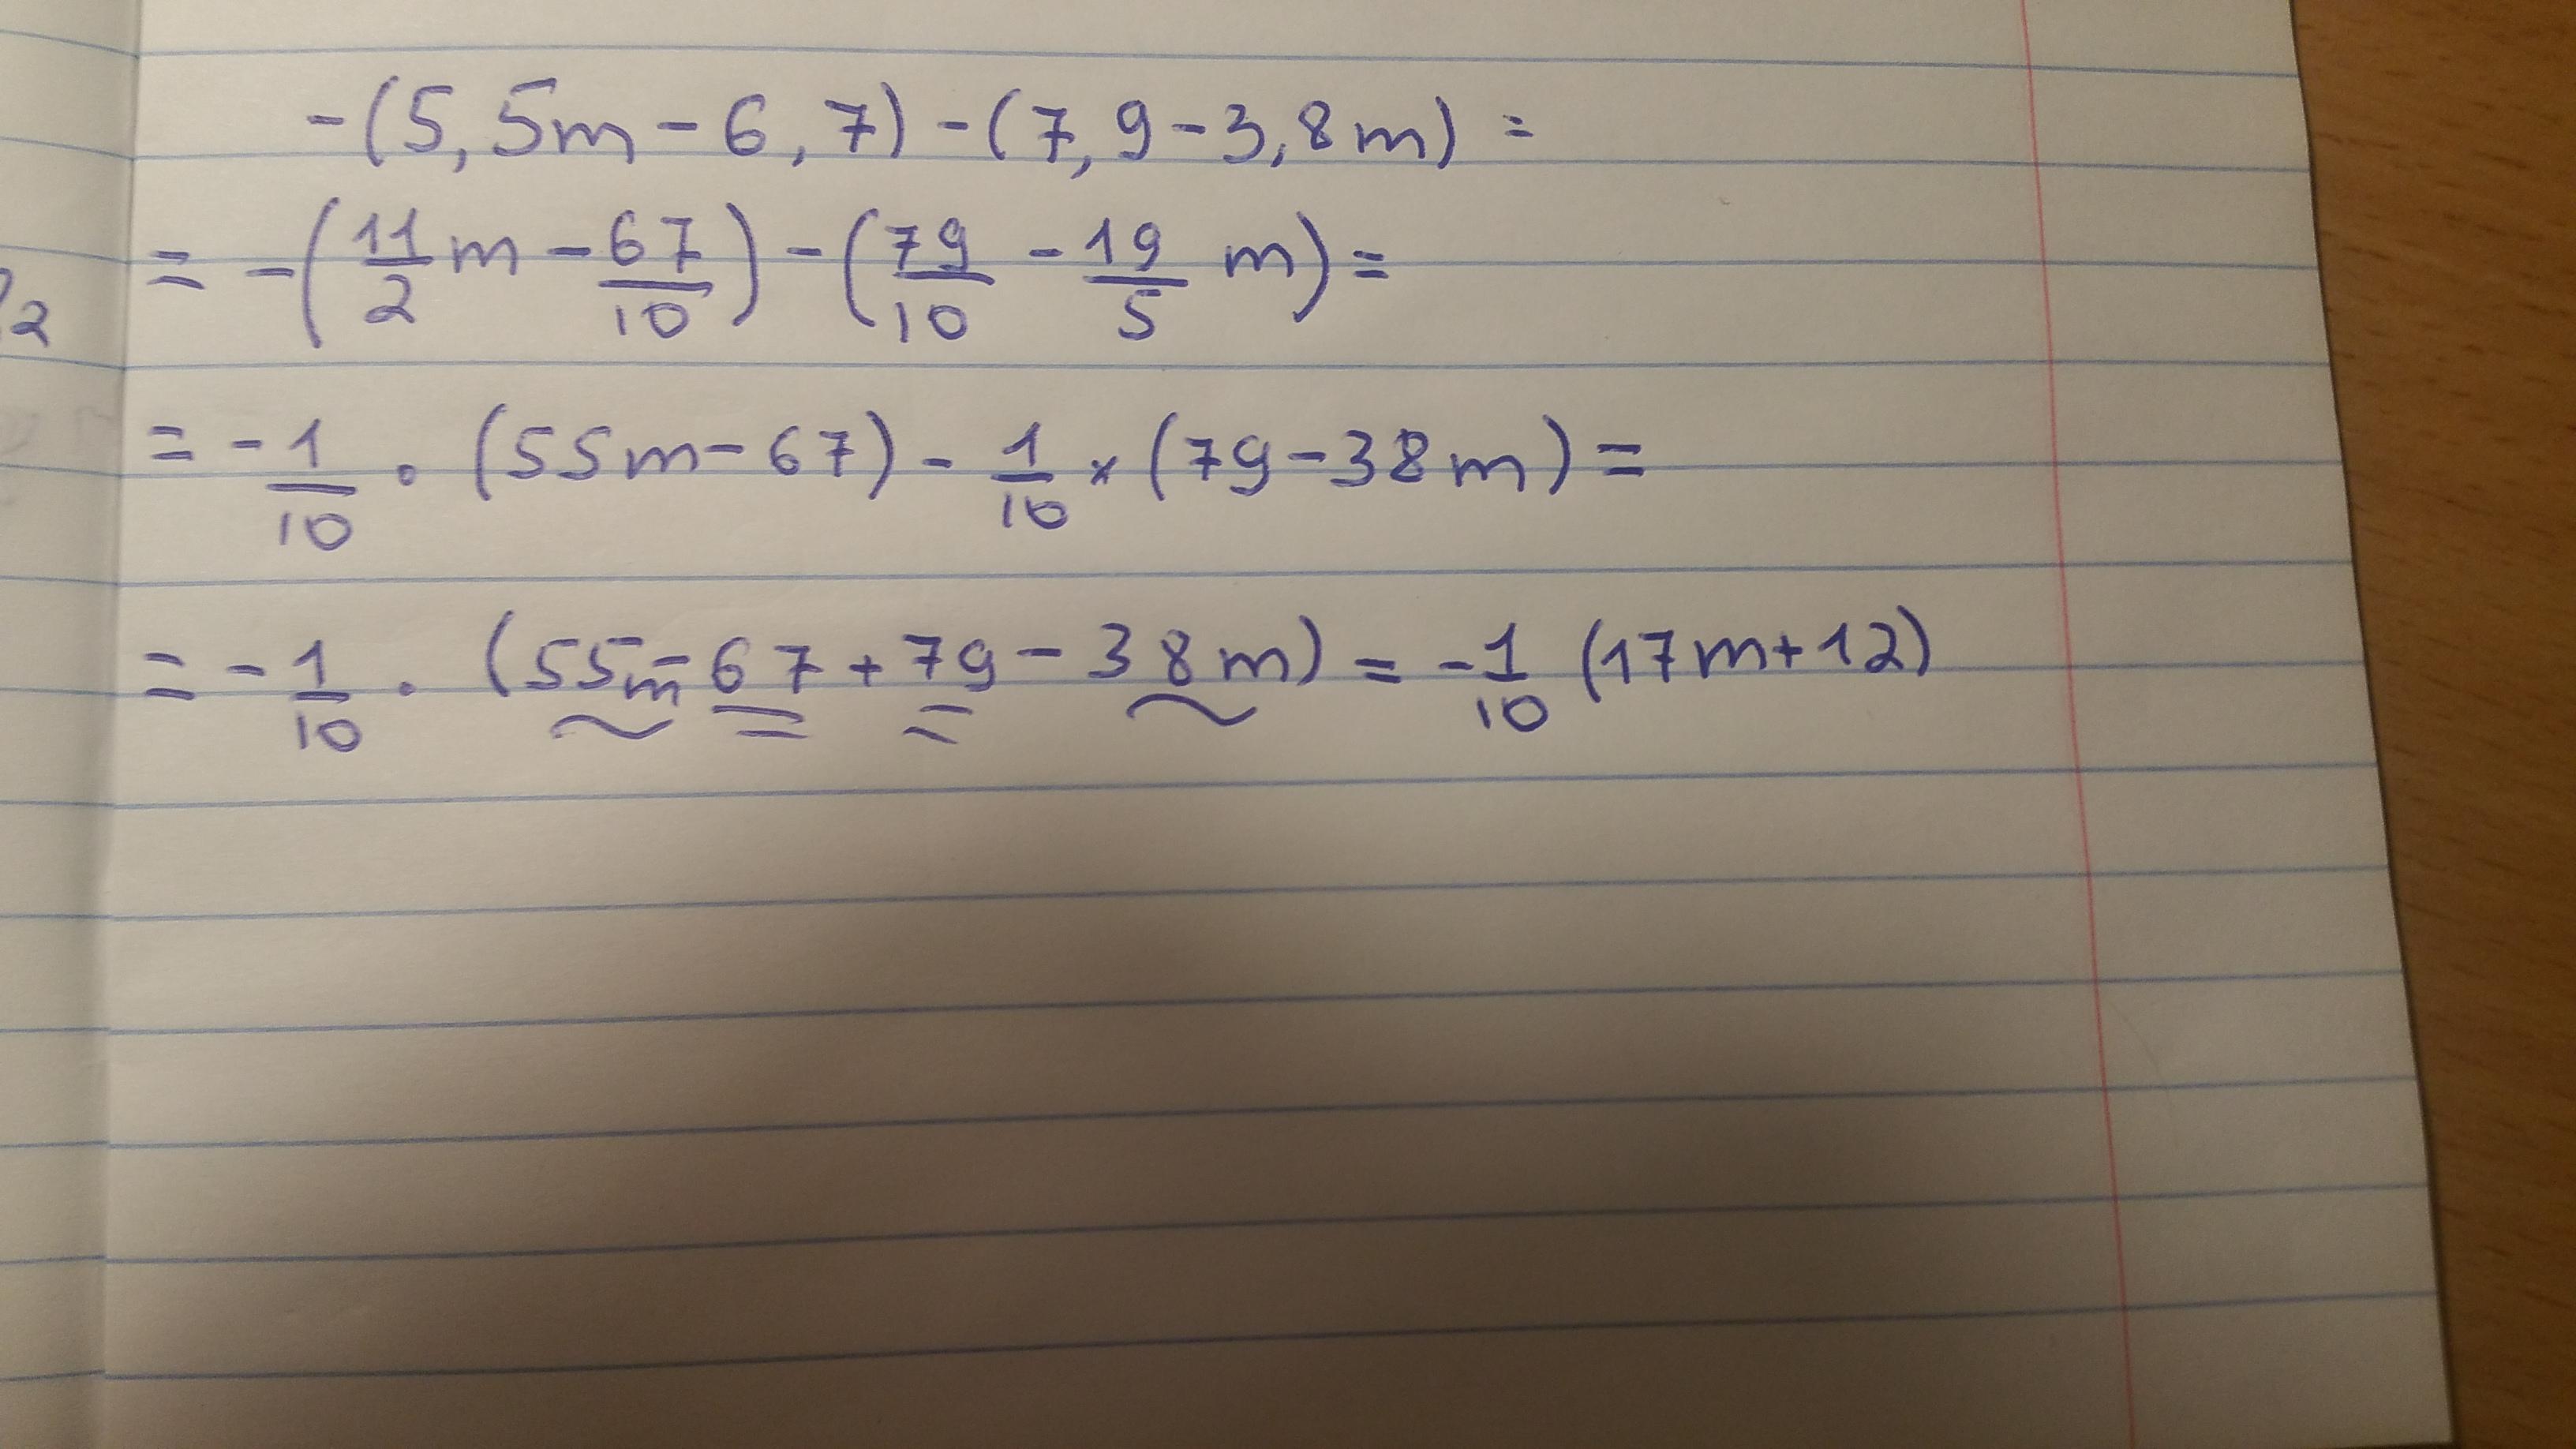 -(5,5m-6,7)-(7,9-3,8m)=
2 = -(11/2 m - 67/10) - (79/10 - 19/5 m) =
= -1/10 · (55m-67) - 1/10 × (79-38m) =
= -1/10 · (55m-67+79-38m) = -1/10 (17m+12)